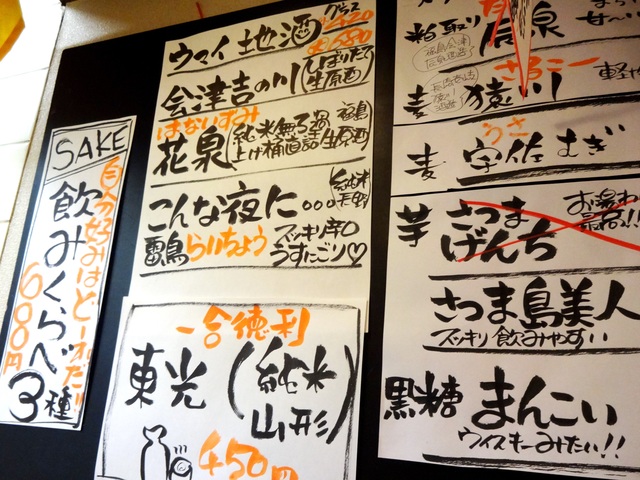 SAKE
自分好みはど一れだ!!
飲みくらべ3種
600円
ウマイ地酒
グラス ¥420
¥680
会津吉の川
しぼりたて
生原酒
はないずみ
花泉
純米無ろ過
上げ桶直詰
福島
生原酒
こんな夜に…
純米
長野
雷鳥 らいちょう
スッキリ辛口
うすにごり♡
一合徳利
東光(純米
山形)
450円
粕取り
辰泉
甘〜い
福島会津
辰泉酒造
麦
さるこー
猿川
軽や
麦
うさ
宇佐むぎ
芋
さつま
げんち
お湯わり
最高!!
さつま島美人
スッキリ飲みやすい
黒糖 まんこい
ウイスキーみたい!!